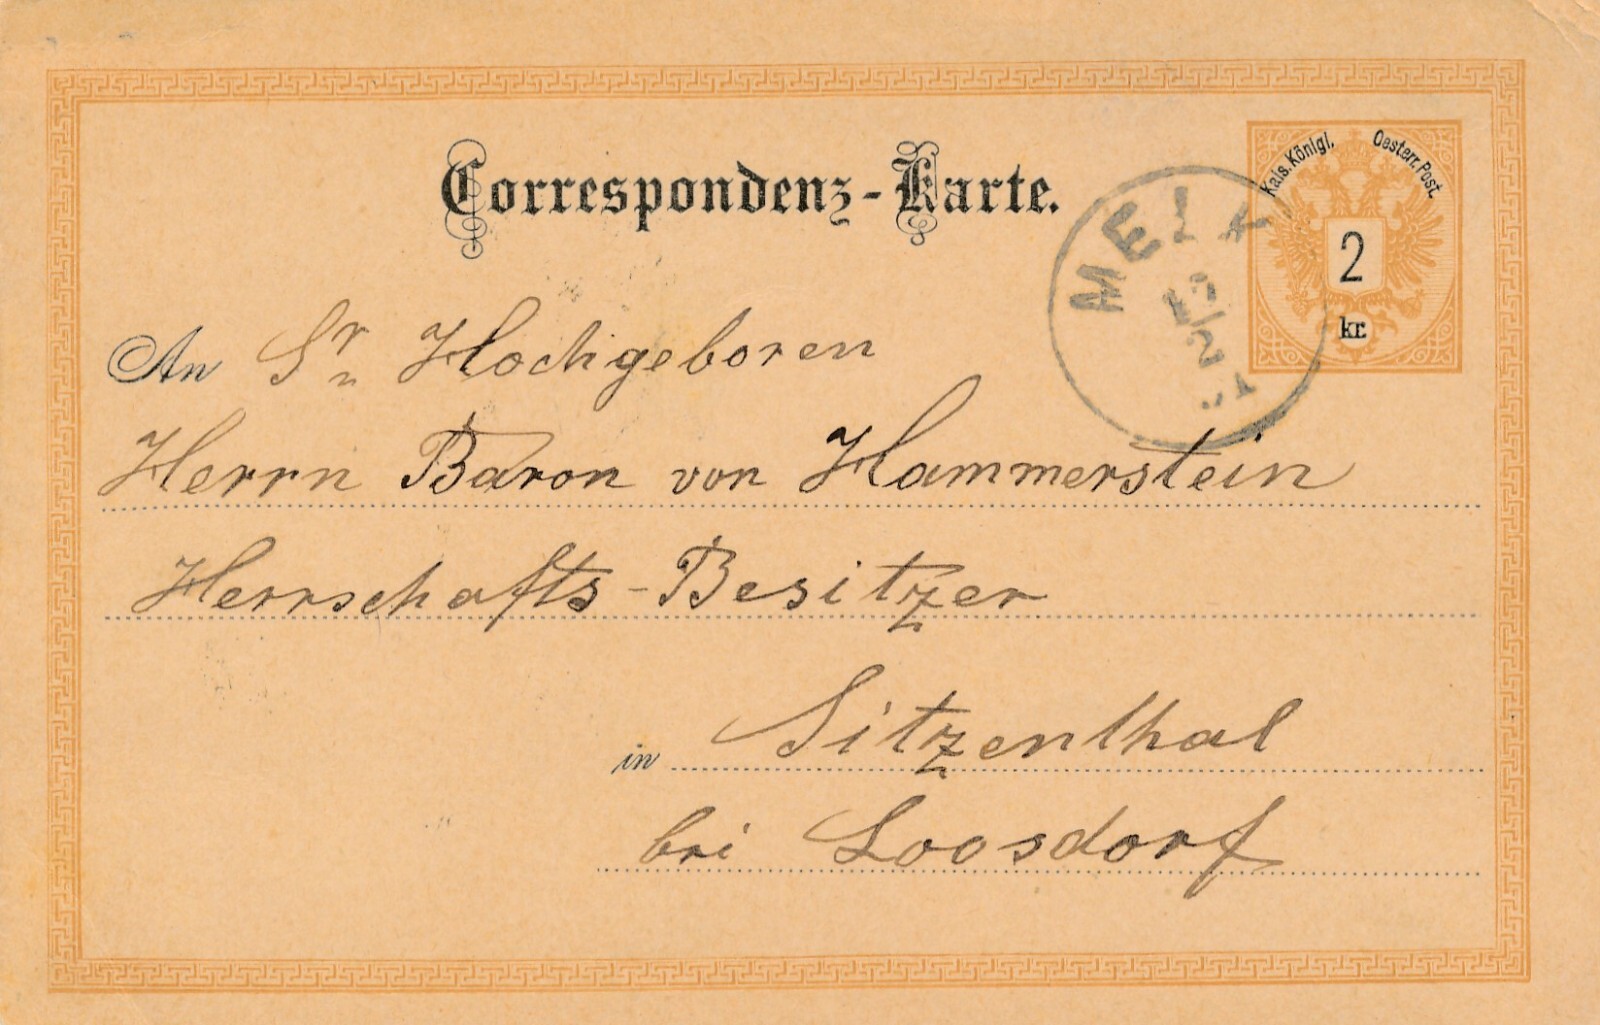 Correspondenz-Karte.
Kais. Königl. Oesterr. Post.
2
kr.
MELK
2
An Sr Hochgeboren
Herrn Baron von Hammerstein
Herrschafts-Besitzer
in Sitzenthal
bei Loosdorf